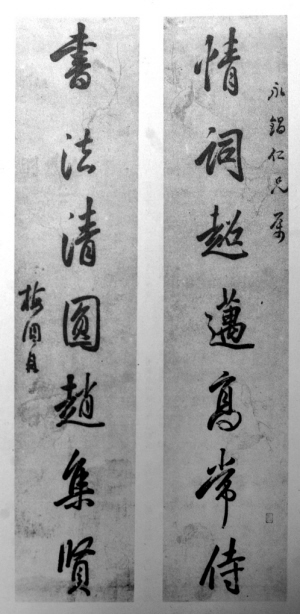 永錫仁兄屬
情詞超邁高常侍
書法清圓趙集賢
梅調鼎